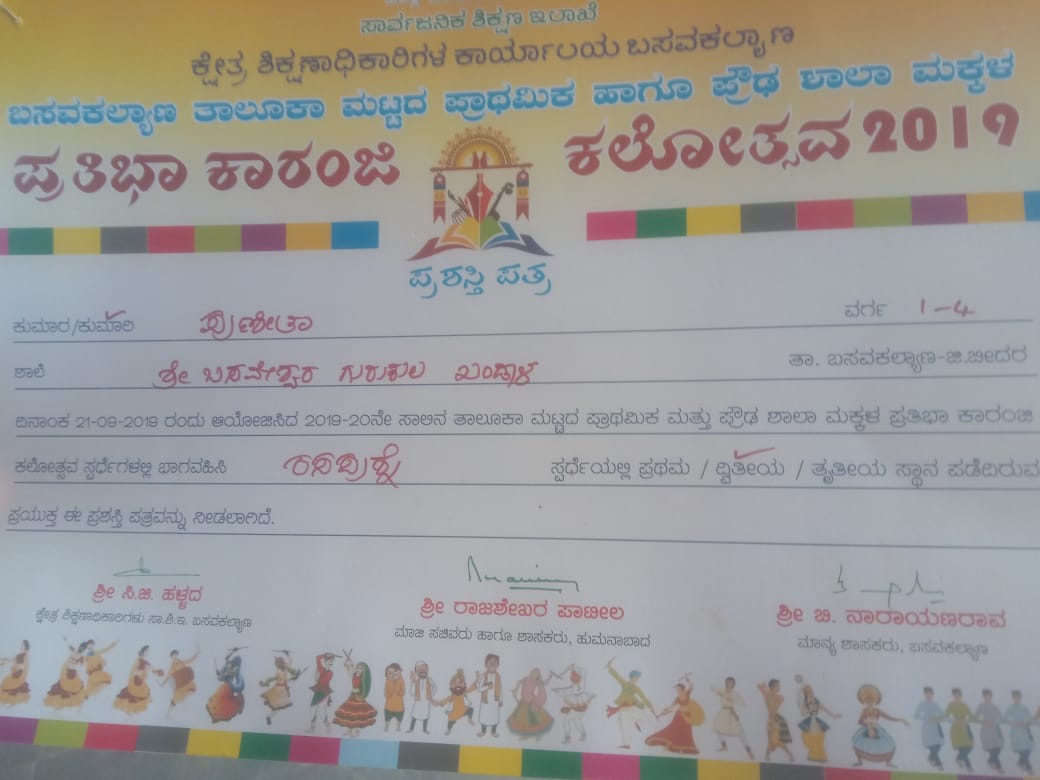 ಸಾರ್ವಜನಿಕ ಶಿಕ್ಷಣ ಇಲಾಖೆ
ಕ್ಷೇತ್ರ ಶಿಕ್ಷಣಾಧಿಕಾರಿಗಳ ಕಾರ್ಯಾಲಯ ಬಸವಕಲ್ಯಾಣ
ಬಸವಕಲ್ಯಾಣ ತಾಲೂಕಾ ಮಟ್ಟದ ಪ್ರಾಥಮಿಕ ಹಾಗೂ ಪ್ರೌಢ ಶಾಲಾ ಮಕ್ಕಳ
ಪ್ರತಿಭಾ ಕಾರಂಜಿ ಕಲೋತ್ಸವ 2019
ಪ್ರಶಸ್ತಿ ಪತ್ರ
ಕುಮಾರ/ಕುಮಾರಿ ಪುಣೀತಾ ವರ್ಗ 1-4
ಶಾಲೆ ಶ್ರೀ ಬಸವೇಶ್ವರ ಗುರುಕುಲ ಖಂಡಾಳ ತಾ. ಬಸವಕಲ್ಯಾಣ-ಜಿ.ಬೀದರ
ದಿನಾಂಕ 21-09-2019 ರಂದು ಆಯೋಜಿಸಿದ 2019-20ನೇ ಸಾಲಿನ ತಾಲೂಕಾ ಮಟ್ಟದ ಪ್ರಾಥಮಿಕ ಮತ್ತು ಪ್ರೌಢ ಶಾಲಾ ಮಕ್ಕಳ ಪ್ರತಿಭಾ ಕಾರಂಜಿ
ಕಲೋತ್ಸವ ಸ್ಪರ್ಧೆಗಳಲ್ಲಿ ಭಾಗವಹಿಸಿ ರಸಪ್ರಶ್ನೆ ಸ್ಪರ್ಧೆಯಲ್ಲಿ ಪ್ರಥಮ / ದ್ವಿತೀಯ / ತೃತೀಯ ಸ್ಥಾನ ಪಡೆದಿರುವ
ಪ್ರಯುಕ್ತ ಈ ಪ್ರಶಸ್ತಿ ಪತ್ರವನ್ನು ನೀಡಲಾಗಿದೆ.
ಶ್ರೀ ಸಿ.ಜಿ. ಹಳ್ಳದ
ಕ್ಷೇತ್ರ ಶಿಕ್ಷಣಾಧಿಕಾರಿಗಳು ಸಾ.ಶಿ.ಇ. ಬಸವಕಲ್ಯಾಣ
ಶ್ರೀ ರಾಜಶೇಖರ ಪಾಟೀಲ
ಮಾಜಿ ಸಚಿವರು ಹಾಗೂ ಶಾಸಕರು, ಹುಮನಾಬಾದ
ಶ್ರೀ ಬಿ. ನಾರಾಯಣರಾವ
ಮಾನ್ಯ ಶಾಸಕರು, ಬಸವಕಲ್ಯಾಣ